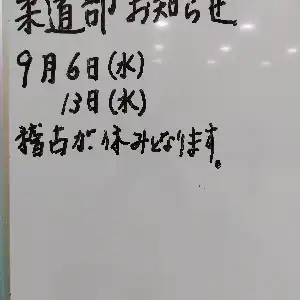 柔道部お知らせ
9月6日(水)
13日(水)
稽古が休みとなります。